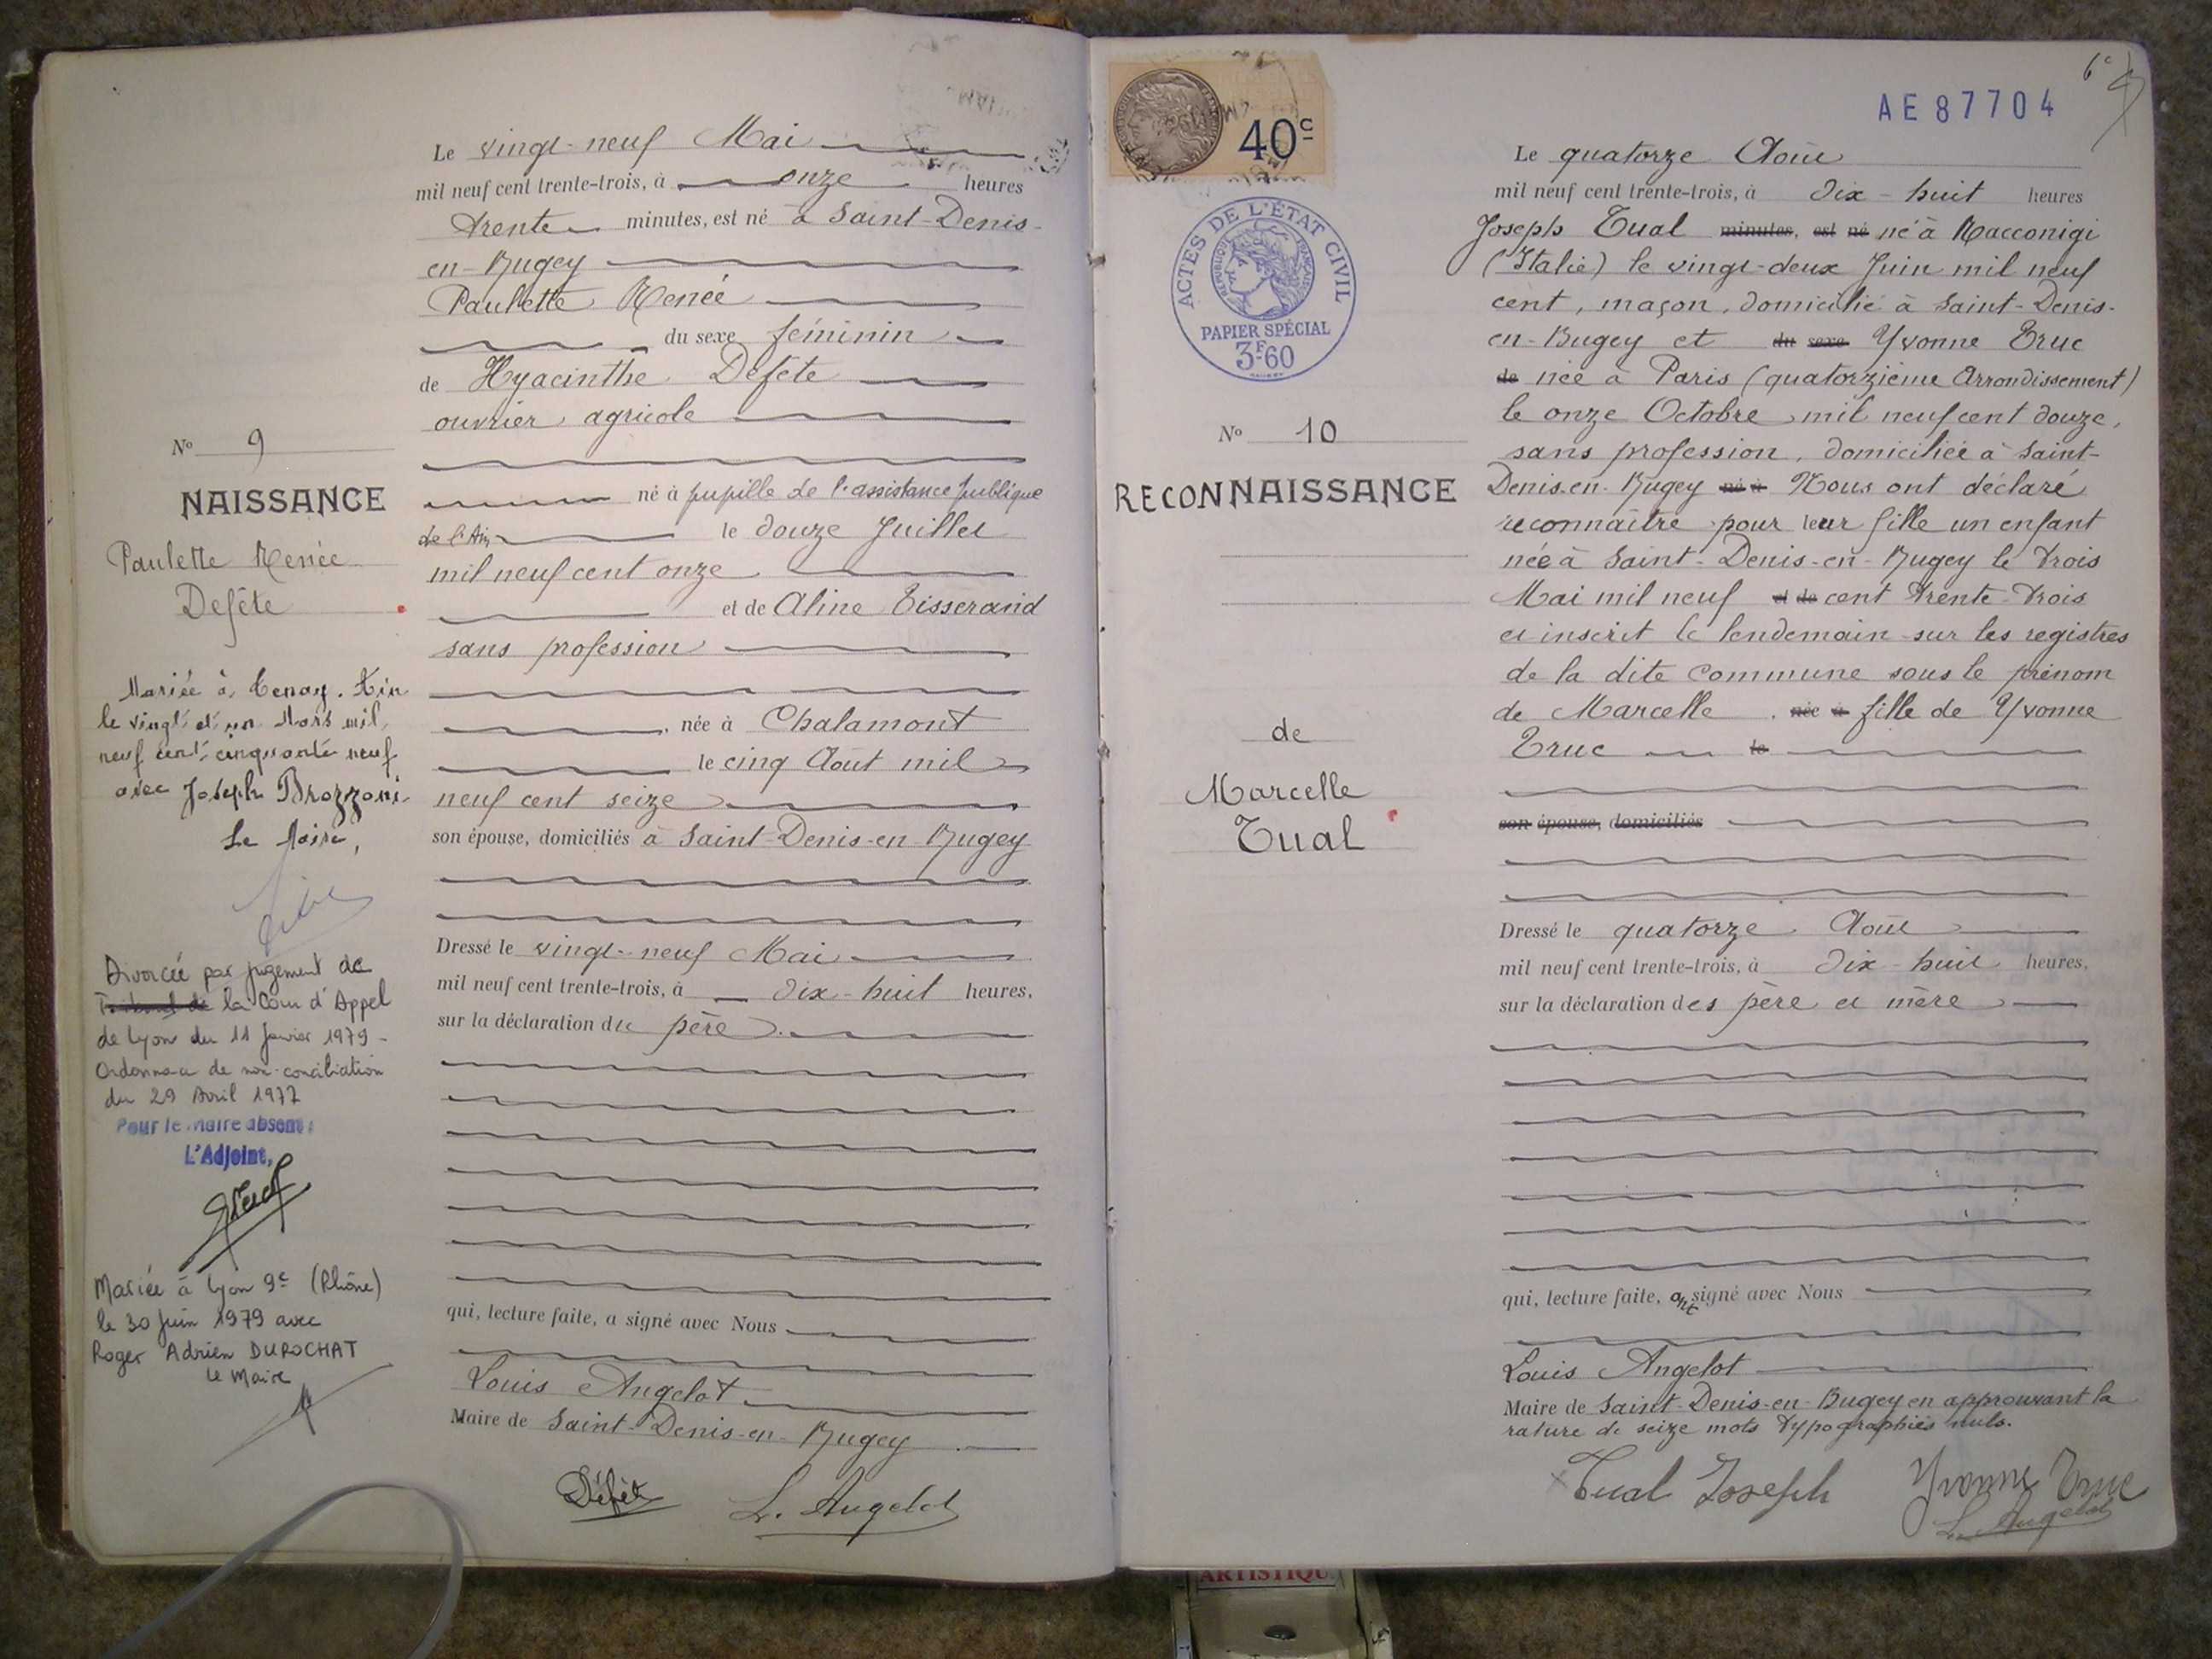 Le vingt-neuf Mai
mil neuf cent trente-trois, à onze heures
trente minutes, est né à Saint-Denis-
en-Bugey
Paulette Renée
du sexe féminin
de Hyacinthe Deféte
ouvrier agricole
né à pupille de l'assistance publique
de l'Ain le douze Juillet
mil neuf cent onze
et de Aline Tisserand
sans profession
née à Chalamont
le cinq Août mil
neuf cent seize
son épouse, domiciliés à Saint-Denis-en-Bugey
Dressé le vingt-neuf Mai
mil neuf cent trente-trois, à dix-huit heures,
sur la déclaration du père
qui, lecture faite, a signé avec Nous
Louis Angelot
Maire de Saint-Denis-en-Bugey
Défète L. Angelot
No 9
NAISSANCE
Paulette Renée
Defête
Mariée à Tenay. Ain
le vingt et un Mars mil
neuf cent cinquante neuf
avec Joseph Brozzoni
Le Maire,
Divorcée par jugement de
Tribunal de la Cour d'Appel
de Lyon du 11 Janvier 1979 -
Ordonnance de non-conciliation
du 29 Avril 1977
Pour le Maire absent:
L'Adjoint,
Mariée à Lyon 9e (Rhône)
le 30 Juin 1979 avec
Roger Adrien DUROCHAT
Le Maire
40c
ACTES DE L'ÉTAT CIVIL
RÉPUBLIQUE FRANÇAISE
PAPIER SPÉCIAL
3F60
No 10
RECONNAISSANCE
de
Marcelle
Tual
6e
AE 87704
Le quatorze Août
mil neuf cent trente-trois, à dix-huit heures
Joseph Tual minutes, est né né à Racconigi
(Italie) le vingt-deux Juin mil neuf
cent, maçon, domicilié à Saint-Denis-
en-Bugey et du sexe Yvonne Truc
de née à Paris (quatorzième Arrondissement)
le onze Octobre mil neuf cent douze,
sans profession, domiciliée à Saint-
Denis-en-Bugey né à Nous ont déclaré
reconnaître pour leur fille un enfant
née à Saint-Denis-en-Bugey le trois
Mai mil neuf et de cent trente-trois
et inscrit le lendemain sur les registres
de la dite Commune sous le prénom
de Marcelle, née à fille de Yvonne
Truc le
son épouse, domiciliés
Dressé le quatorze Août
mil neuf cent trente-trois, à dix-huit heures,
sur la déclaration des père et mère
qui, lecture faite, ont signé avec Nous
Louis Angelot
Maire de Saint-Denis-en-Bugey en approuvant la
rature de seize mots typographiés nuls.
Tual Joseph Yvonne Truc
L. Angelot
ARTISTIQU